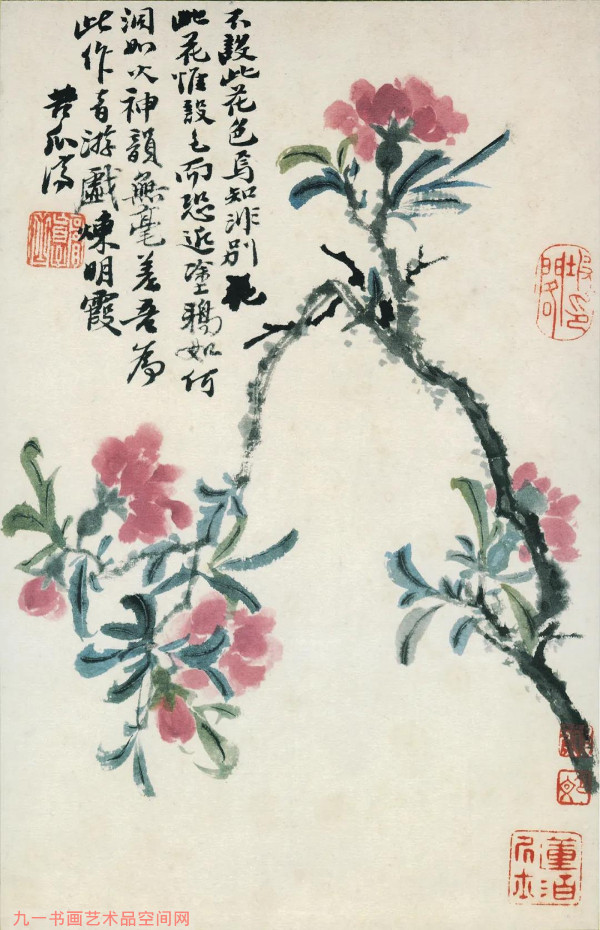 不設此花色焉知非別花
此花惟設色而恐近塗鴉如何
洞如火神韻無毫差吾為
此作者游戲煉明霞
苦瓜濟
九一书画艺术品空间网